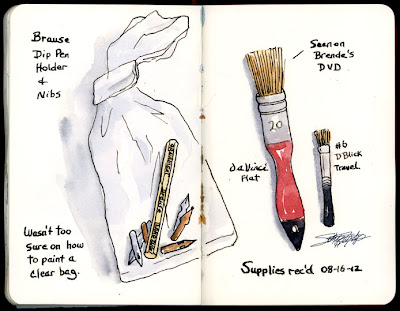 Brause
Dip Pen
Holder
&
Nibs
Wasn't too
sure on how
to paint a
clear bag.
Seen on
Brenda's
DVD
20
da Vinci
Flat
#6
D Blick
Travel
Supplies rec'd 08-16-12